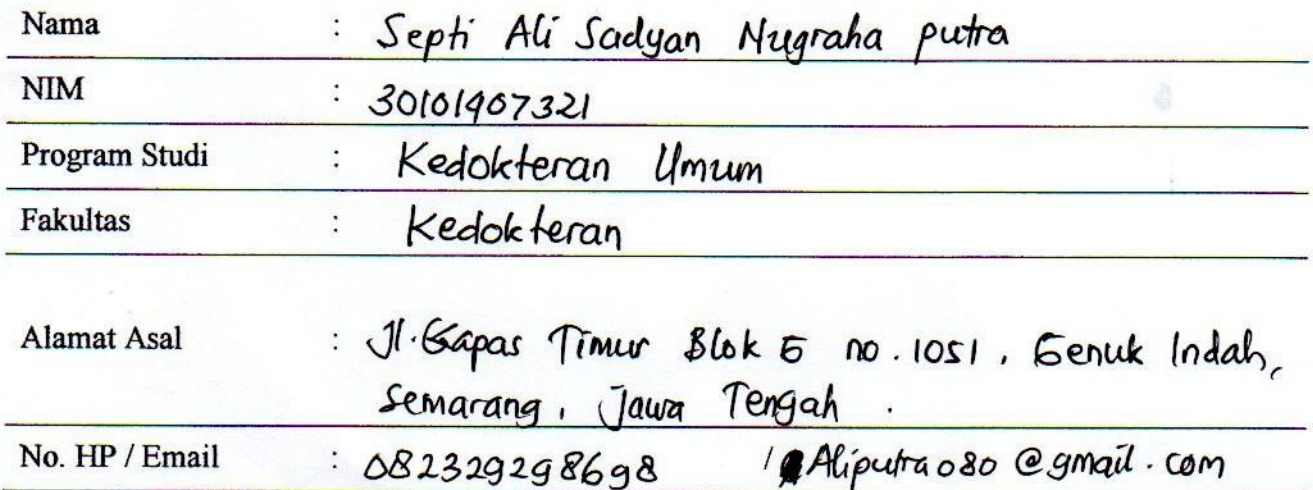 Nama : Septi Ali Sadyan Nugraha putra
NIM : 30101907321
Program Studi : Kedokteran Umum
Fakultas : Kedokteran
Alamat Asal : Jl. Gapas Timur Blok G no. 1051, Genuk Indah,
Semarang, Jawa Tengah.
No. HP / Email : 082329298698 / Aliputra080@gmail.com